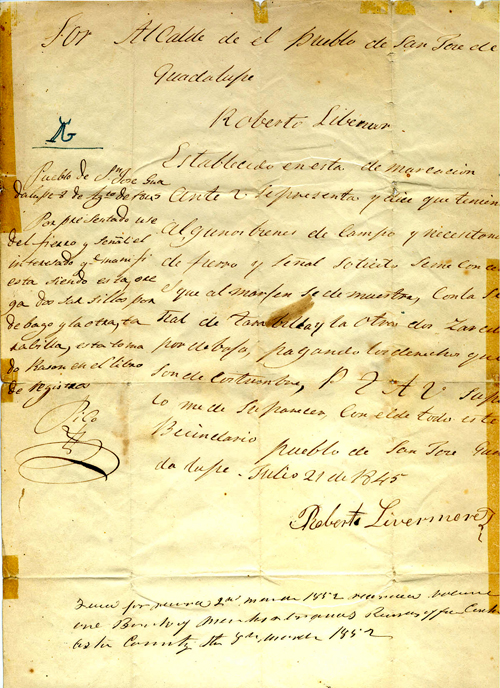 Sor Alcalde de el pueblo de San Jose de
Guadalupe
Roberto Libemar.
Establecido en esta demarcacion
Ante V. se presenta y dice que tenien
Algunos bienes de Campo y necesitan
de fierro y Señal solicito seme conce
que al margen se demuestra, Con la Se
ñal de y la Otra dos Zarci
por debajo, pagando los derechos que
son de Costumbre, P. Z. A. V. Sup
co me de Su parecer, Con el de todo este
Becindario
pueblo de San Jose Gua
dalupe. Julio 21 de 1845
Roberto Livermore
Pueblo de San Jose Gua
dalupe de 1845
Por presentado use
del fierro y Señal el
interesado y manifi
esta siendo esta, ore
ja dos sarsillos por
de bajo y la otra,
labilla, esta toma
do Rason en el libro
de registro
Pico
2nd March 1852 volume
one Marks and
County 5th March 1852